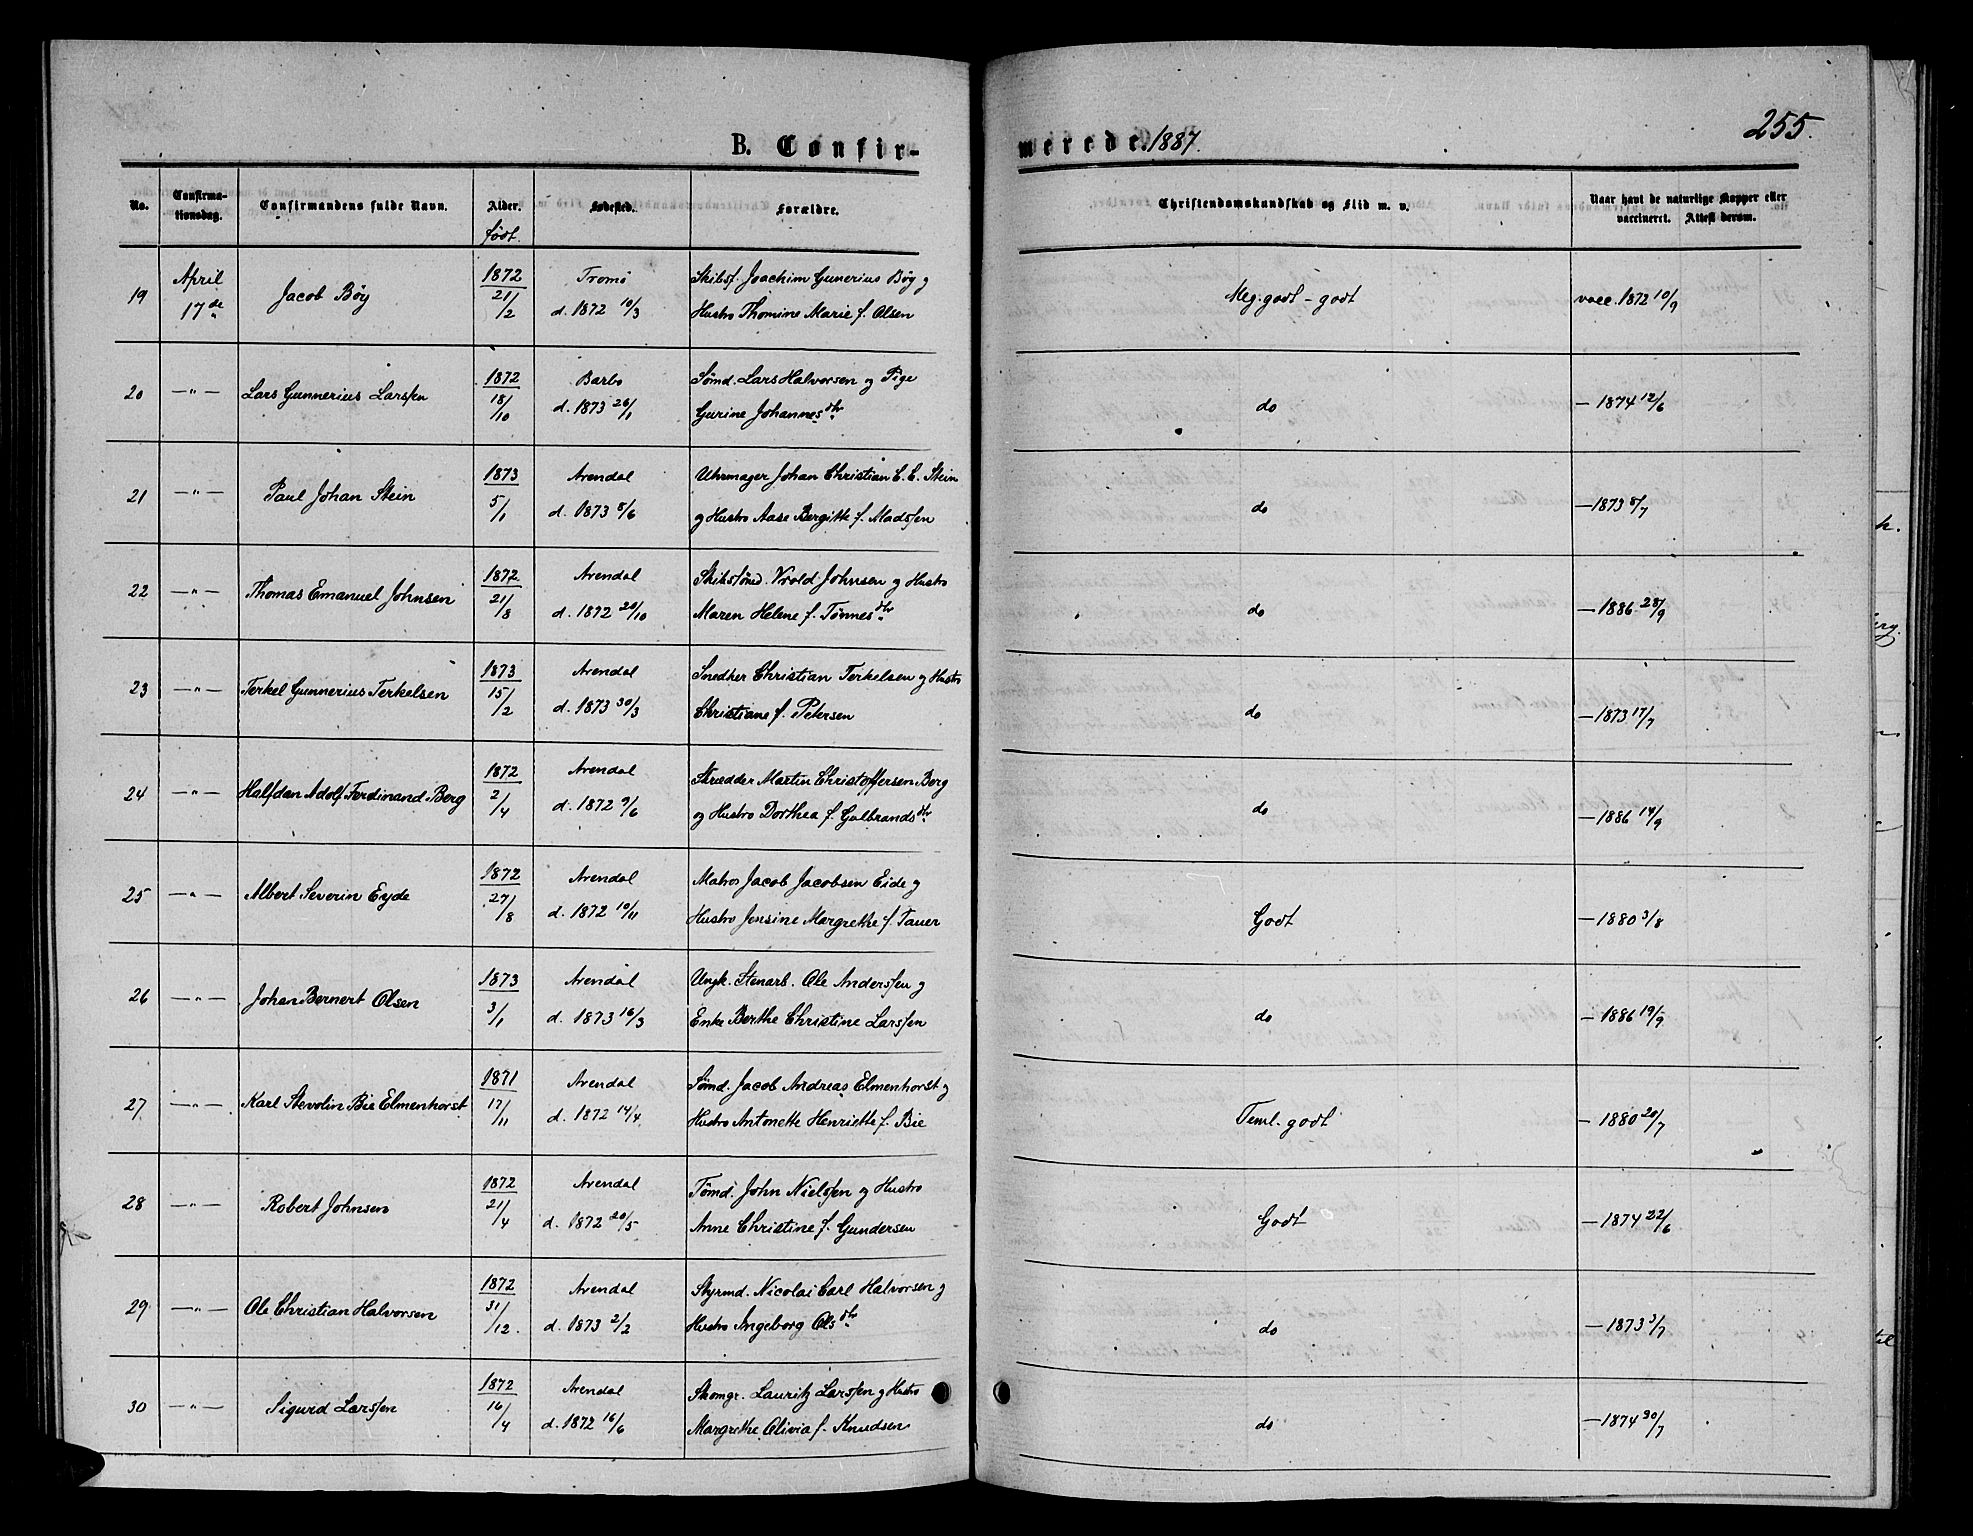 B. Confir-
merede. 1887.
255.
No.
Confirma-
tionsdag.
Confirmandens fulde Navn.
Alder.
født.
Fødested.
Forældre.
Christendomskundskab og Flid m. v.
Naar havt de naturlige Kopper eller
vaccineret. Attest derom.
19 April 17de Jacob Böy 1872 21/2 Tromö d. 1872 10/3
Skibsf. Joachim Gunerius Böy og
Hustro Thomine Marie f. Olsen
Meg. godt - godt
vacc. 1872 10/9
20 —"— Lars Gunnerius Larsſen 1872 18/10 Barbo d. 1873 26/1
Sömd. Lars Halvorsen og Pige
Gurine Johannesdtr
do
— 1874 12/6
21 —"— Paul Johan Stein 1873 5/1 Arendal d. 1873 8/6
Uhrmager Johan Christian C. C. Stein
og Hustro Aase Bergitte f. Madsſen
do
— 1873 8/7
22 —"— Thomas Emanuel Johnsen 1872 21/8 Arendal d. 1872 20/10
Skibstömd. Vrold Johnsen og Hustro
Maren Helene f. Tönnesdtr
do
— 1886 28/9
23 —"— Terkel Gunnerius Terkelsen 1873 15/2 Arendal d. 1873 30/3
Snedker Christian Terkelsen og Hustro
Christiane f. Petersen
do
— 1873 17/7
24 —"— Halfdan Adolf Ferdinand Berg 1872 2/4 Arendal d. 1872 9/6
Skrædder Martin Christoffersen Berg
og Hustro Dorthea f. Gulbrandsdtr
do
— 1886 14/9
25 —"— Albert Severin Eyde 1872 27/8 Arendal d. 1872 10/11
Matros Jacob Jacobsen Eide og
Hustro Jensine Margrethe f. Tauer
Godt
— 1880 3/8
26 —"— Johan Bernert Olsen 1873 3/1 Arendal d. 1873 16/3
Ungk. Stenarb. Ole Andersſen og
Enke Berthe Christine Larsſen
do
— 1886 19/9
27 —"— Karl Stevolin Bie Elmenhorst 1871 17/11 Arendal d. 1872 14/4
Sömd. Jacob Andreas Elmenhorst og
Hustro Antonette Henriette f. Bie
Teml. godt
— 1880 20/7
28 —"— Robert Johnsen 1872 21/4 Arendal d. 1872 20/5
Tömd. John Nielsſen og Hustro
Anne Christine f. Gundersen
Godt
— 1874 22/6
29 —"— Ole Christian Halvorsen 1872 31/12. Arendal d. 1873 2/2
Styrmd. Nicolai Carl Halvorsen og
Hustro Ingeborg Olsdtr
do
— 1873 3/7
30 —"— Sigurd Larsſen 1872 16/4 Arendal d. 1872 16/6
Skomgr. Lauritz Larsſen og Hustro
Margrethe Olivia f. Knudsen
do
— 1874 30/7